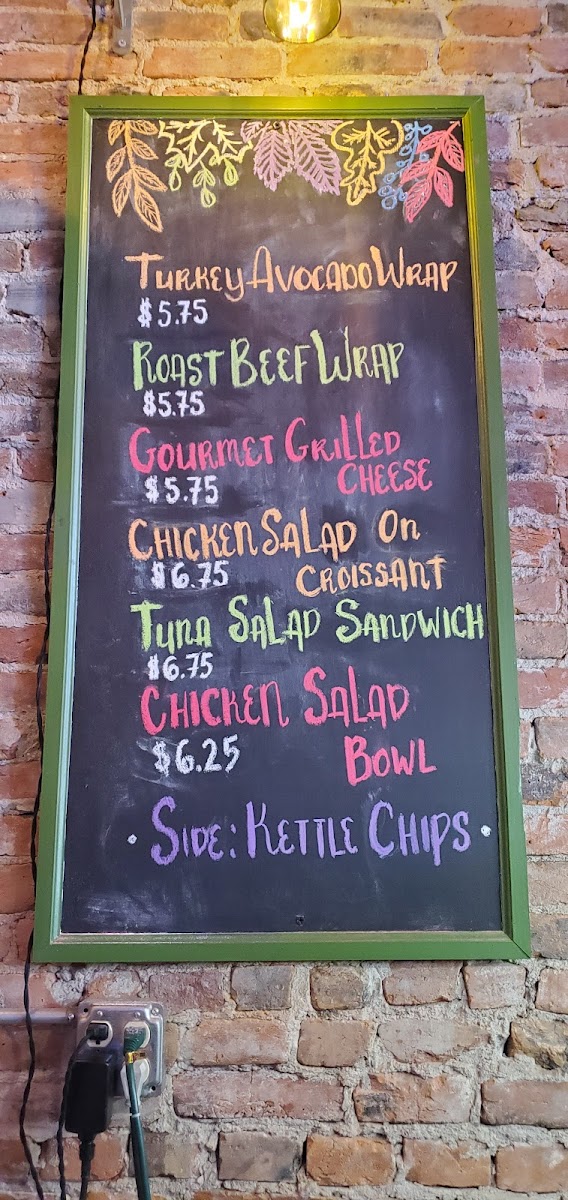 Turkey Avocado Wrap
$5.75
Roast Beef Wrap
$5.75
Gourmet Grilled
Cheese
$5.75
Chicken Salad On
Croissant
$6.75
Tuna Salad Sandwich
$6.75
Chicken Salad
Bowl
$6.25
· Side: Kettle Chips ·